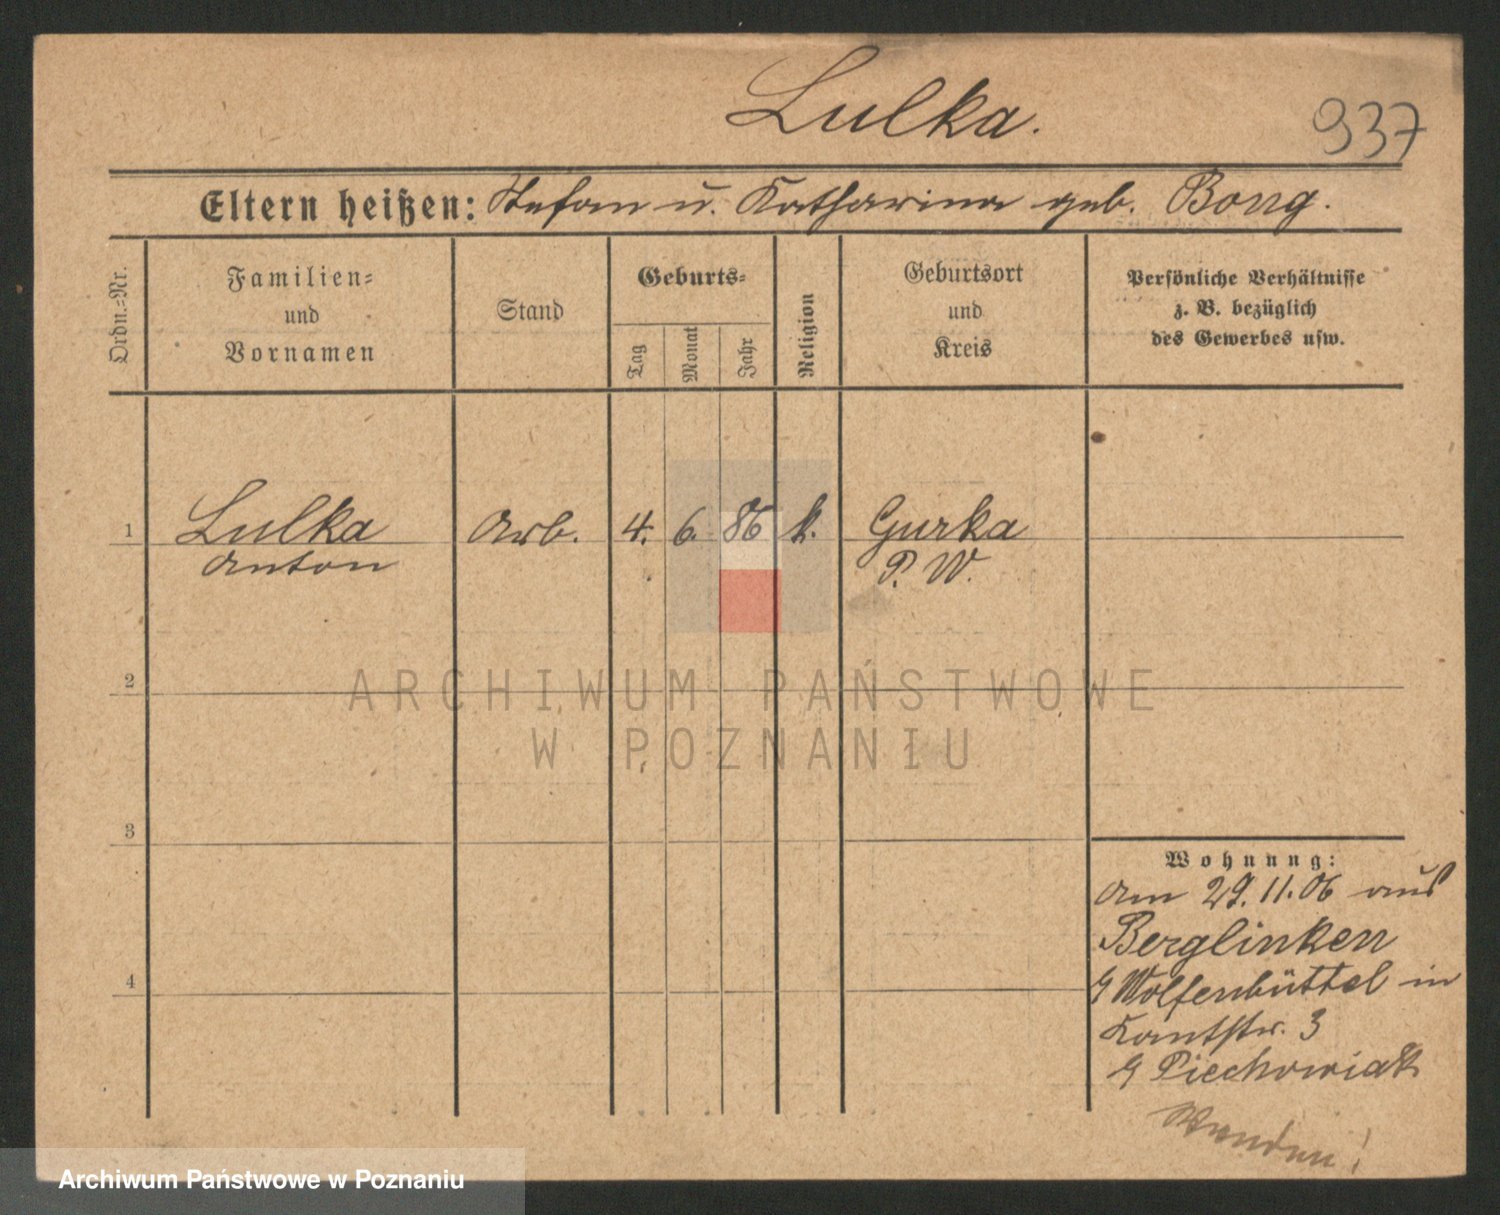 Lulka.
937
Eltern heißen: Stefan u. Katharina geb. Bong.
Ordn.=Nr.
Familien=
und
Vornamen
Stand
Geburts=
Tag
Monat
Jahr
Religion
Geburtsort
und
Kreis
Persönliche Verhältnisse
z. B. bezüglich
des Gewerbes usw.
1 Lulka Arb. 4. 6. 86 k. Gurka
Anton P. W.
2
ARCHIWUM PAŃSTWOWE
W POZNANIU
3
Wohnung:
Am 29.11.06 aus
Berglinken
Wolfenbüttel in
4
Kantstr. 3
Piechowiak
Wenden!
Archiwum Państwowe w Poznaniu